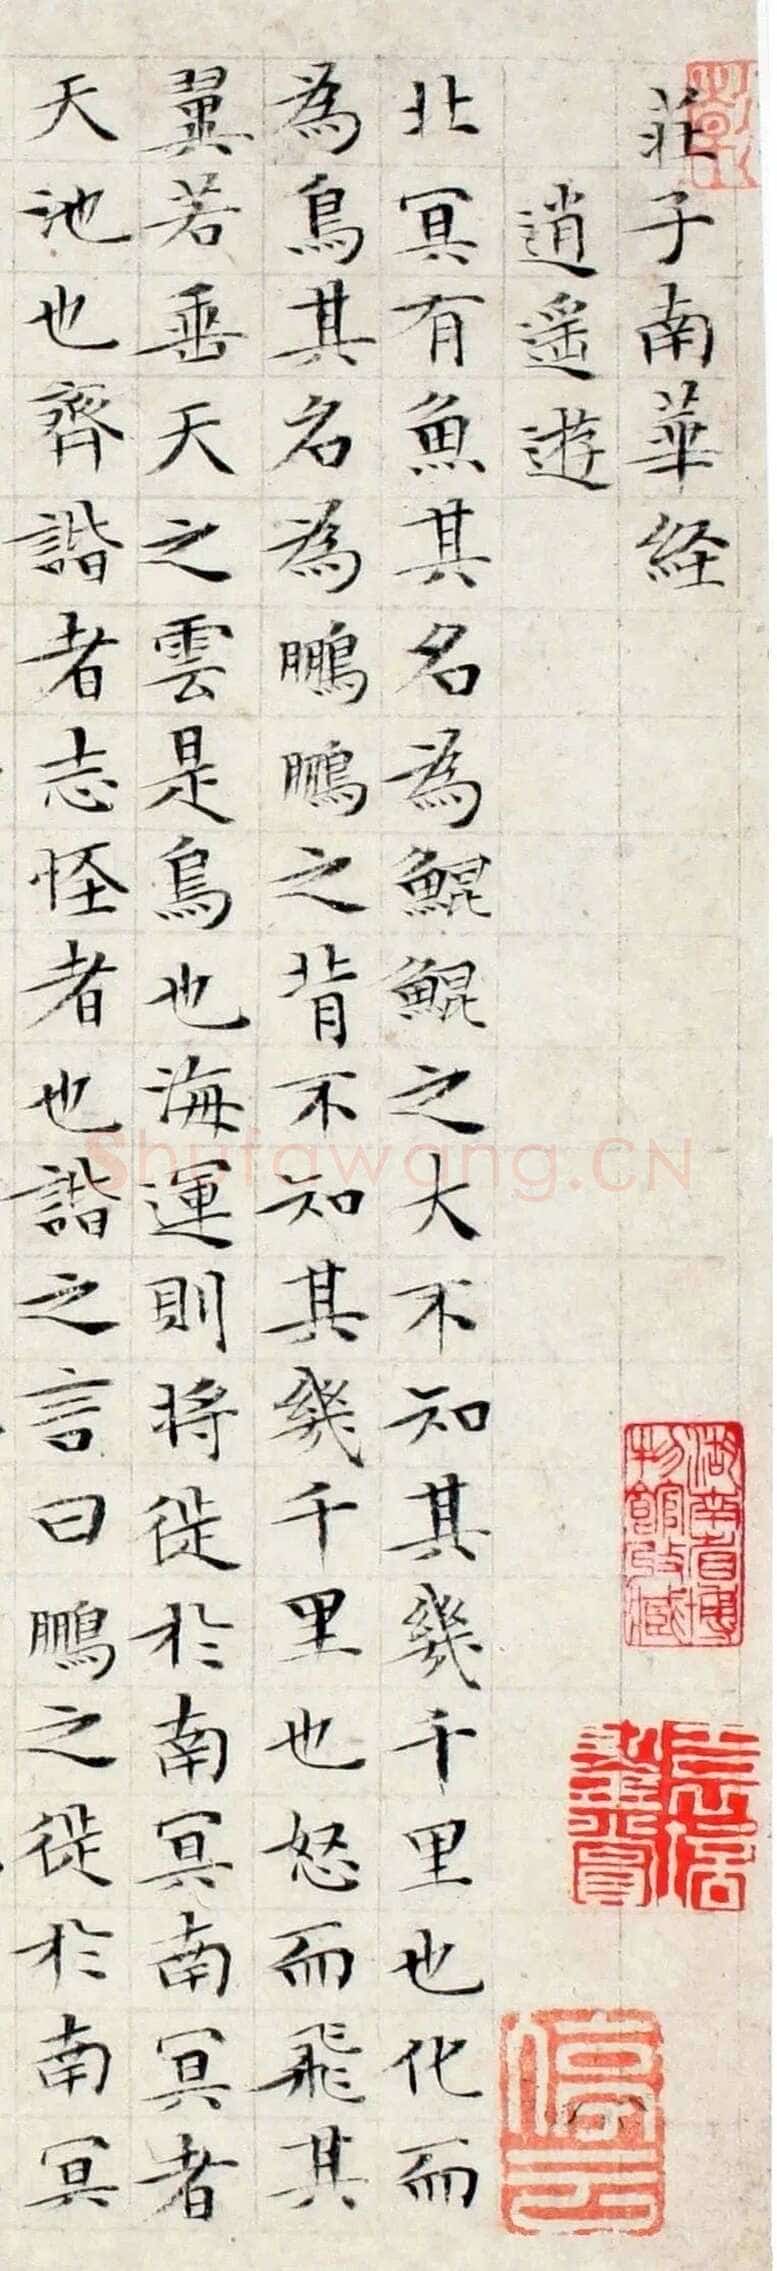 莊子南華経
逍遥遊
北冥有魚其名為鯤鯤之大不知其幾千里也化而
為鳥其名為鵬鵬之背不知其幾千里也怒而飛其
翼若垂天之雲是鳥也海運則将徙於南冥南冥者
天池也齊諧者志怪者也諧之言曰鵬之徙於南冥
湖南省博物館收藏
停云
Shufawang.CN